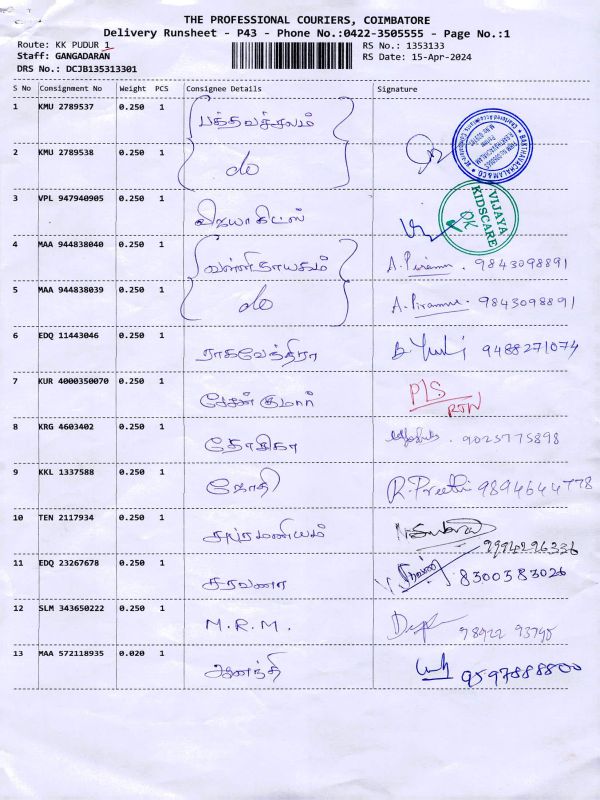 THE PROFESSIONAL COURIERS, COIMBATORE
Delivery Runsheet - P43 - Phone No.:0422-3505555 - Page No.:1
Route: KK PUDUR 1
RS No.: 1353133
Staff: GANGADARAN
RS Date: 15-Apr-2024
DRS No.: DCJB135313301
S No Consignment No Weight PCS Consignee Details Signature
1 KMU 2789537 0.250 1 பக்தவச்சலம்
2 KMU 2789538 0.250 1 do
BAKTHAVACHALAM & CO
3 VPL 947940905 0.250 1 விஜயா கிட்ஸ்
VIJAYA KIDSCARE OK
4 MAA 944838040 0.250 1 வள்ளிநாயகம் 9843098891
5 MAA 944838039 0.250 1 do 9843098891
6 EDQ 11443046 0.250 1 ராகவேந்திரா 9488271074
7 KUR 4000350070 0.250 1 P/S RTN
8 KRG 4603402 0.250 1 9025775898
9 KKL 1337588 0.250 1 ஜோதி R. Preethi 9894644778
10 TEN 2117934 0.250 1 சுப்ரமணியம் 9994296336
11 EDQ 23267678 0.250 1 சரவணா 8300383026
12 SLM 343650222 0.250 1 M.R.M.
13 MAA 572118935 0.020 1 ஆனந்தி 9597888800